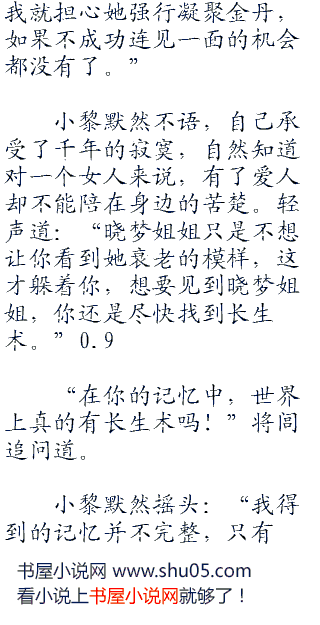 我就担心她强行凝聚金丹，
如果不成功连见一面的机会
都没有了。”
小黎默然不语，自己承
受了千年的寂寞，自然知道
对一个女人来说，有了爱人
却不能陪在身边的苦楚。轻
声道：“晓梦姐姐只是不想
让你看到她衰老的模样，这
才躲着你，想要见到晓梦姐
姐，你还是尽快找到长生
术。”0.9
“在你的记忆中，世界
上真的有长生术吗！”将闾
追问道。
小黎默然摇头：“我得
到的记忆并不完整，只有
书屋小说网 www.shu05.com
看小说上书屋小说网就够了！